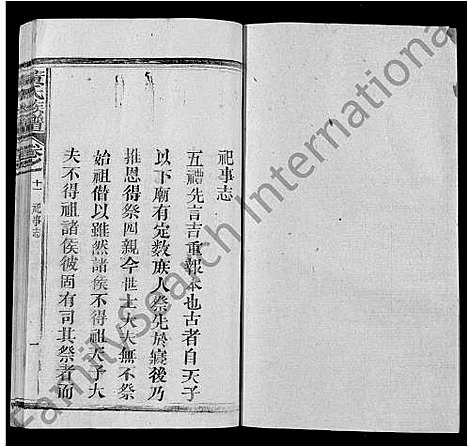 祀事志
五禮先言吉重報本也古者自天子
以下廟有定數庶人祭先於寢後乃
推恩得祭四親今世士大夫無不祭
始祖僭以雖然諸侯不得祖天子大
夫不得祖諸侯彼固有司其祭者而
氏族譜
卷之
十一 祀事志
一
FamilySearch International